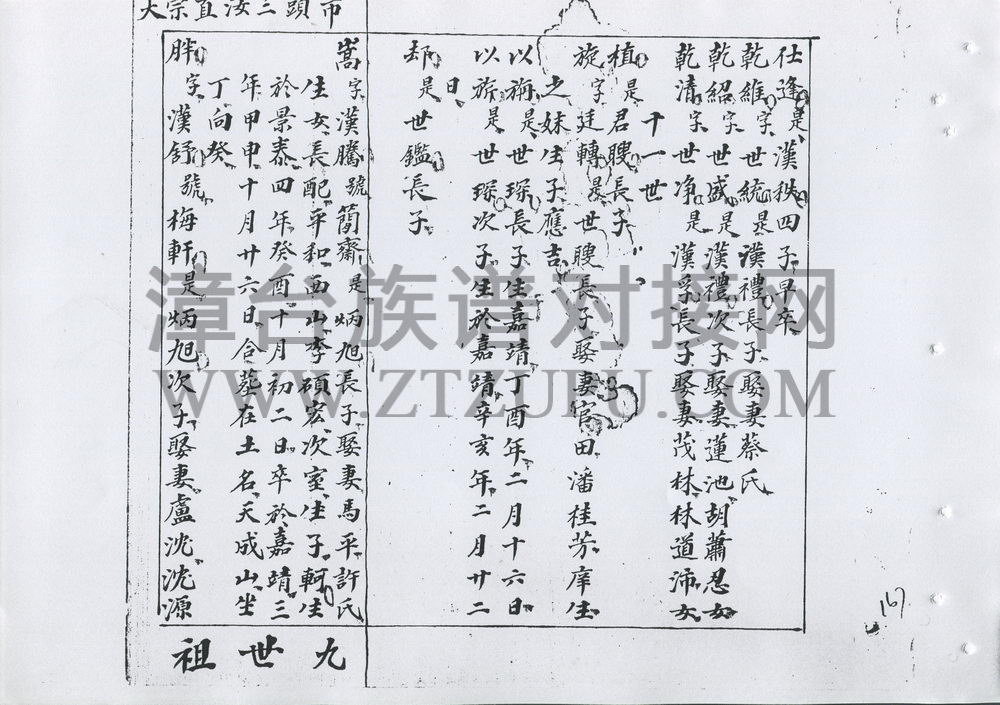 仕逢是漢秩四子早卒
乾維字世統是漢禮長子娶妻蔡氏
乾紹字世盛是漢禮次子娶妻蓮池胡蕭忍女
乾清字世净是漢孚長子娶妻茂林林道沛女
十一世
植是君睃長子
旋字廷轉是世睃長子娶妻官田潘桂芳庠生
之妹生子應吉
以旃是世琛長子生嘉靖丁酉年二月十六日
以旂是世琛次子生於嘉靖辛亥年二月廿二
日
却是世鑑長子
市頭三汝直宗大
嵩字漢騰號簡齋是炳旭長子娶妻馬平許氏
生女長配平和西山李碩宏次室生子軻生
於景泰四年癸酉十月初二日卒於嘉靖三
年甲申十月廿六日合葬在土名天成山坐
丁向癸
胖字漢舒號梅軒是炳旭次子娶妻盧沈沈源
九世祖
167
漳台族谱对接网
WWW.ZTZUPU.COM